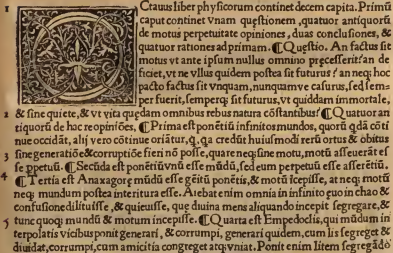 1 OCtauus liber physicorum continet decem capita. Primũ
caput continet vnam questionem, quatuor antiquorũ
de motus perpetuitate opiniones, duas conclusiones, &
quatuor rationes ad primam. ¶ Quęstio. An factus sit
motus vt ante ipsum nullus omnino precesserit? an de
ficiet, vt ne vllus quidem postea sit futurus? an neq; hoc
pacto factus sit vnquam, nunquamve casurus, sed sem-
per fuerit, semperq; sit futurus, vt quiddam immortale,
1 & sine quiete, & vt vita quędam omnibus rebus natura cõstantibus? ¶ Quatuor an
tiquorũ de hoc re opiniões. ¶ Prima est ponētiũ infinitos mundos, quorũ q̃dã cõti
nue occidãt, alij vero cõtinue oriãtur, q. qa credũt huiusmodi rerũ ortus & obitus
3 sine generatiõe & corruptiõe fieri nõ posse, quare neq; sine motu, motũ asseuerãt es
se ppetuũ. ¶ Secũda est ponētiũ vnũ esse mũdũ, sed eum perpetuũ esse asserētiũ.
4 ¶ Tertia est Anaxagorę mũdũ esse gēitũ ponētis, & motũ icepisse, at neq; motũ
neq; mundum postea interitura esse. Aiebat enim omnia in infinito ęuo in chao &
confusione dilituisse, & quieuisse, que diuina mens aliquando incepit segregare, &
5 tunc quoq; mundũ & motum incepisse. ¶ Quarta est Empedoclis, qui mũdum in
terpolatis vicibus ponit generari, & corrumpi, generari quidem, cum lis segreget &
diuidat, corrumpi, cum amicitia congreget atq; vniat. Ponit enim litem segregãdo